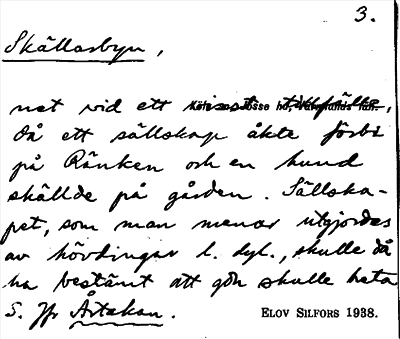 3.
Skällarbyn,
net vid ett visst tillfälle,
då ett sällskap åkte förbi
på Ränken och en hund
skällde på gården. Sällska-
pet, som man menar utgjordes
av hövdingar l. dyl., skulle då
ha bestämt att gdn skulle heta
S. Jfr Årtakan.
ELOV SILFORS 1938.